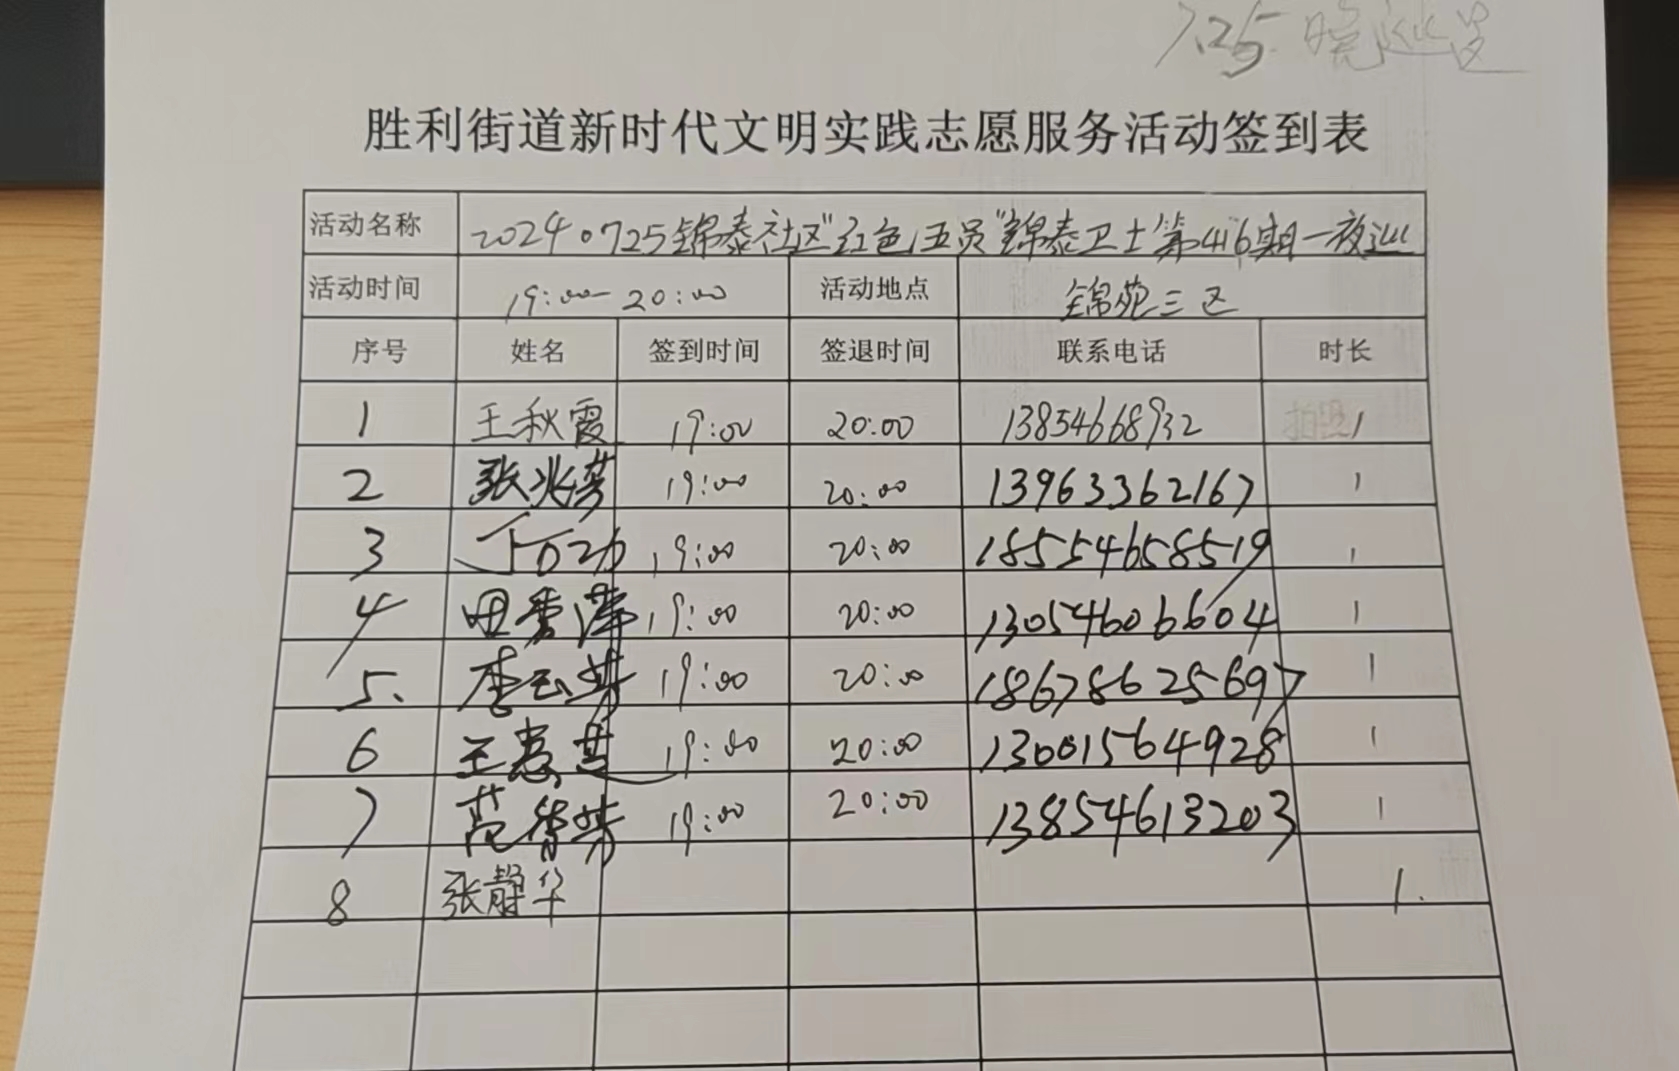 7.25
胜利街道新时代文明实践志愿服务活动签到表
活动名称 20240725锦泰社区"红色五员"锦泰卫士第416期一夜巡
活动时间 19:00-20:00 活动地点 锦苑三区
序号 姓名 签到时间 签退时间 联系电话 时长
1 王秋霞 19:00 20:00 13854668932 拍照 1
2 张兆芳 19:00 20:00 13963362167 1
3 19:00 20:00 18554658519 1
4 田秀萍 19:00 20:00 13054606604 1
5、 李玉芳 19:00 20:00 18678625697 1
6 王惠英 19:00 20:00 13001564928 1
7 范智芳 19:00 20:00 13854613203 1
8 张静华 1.